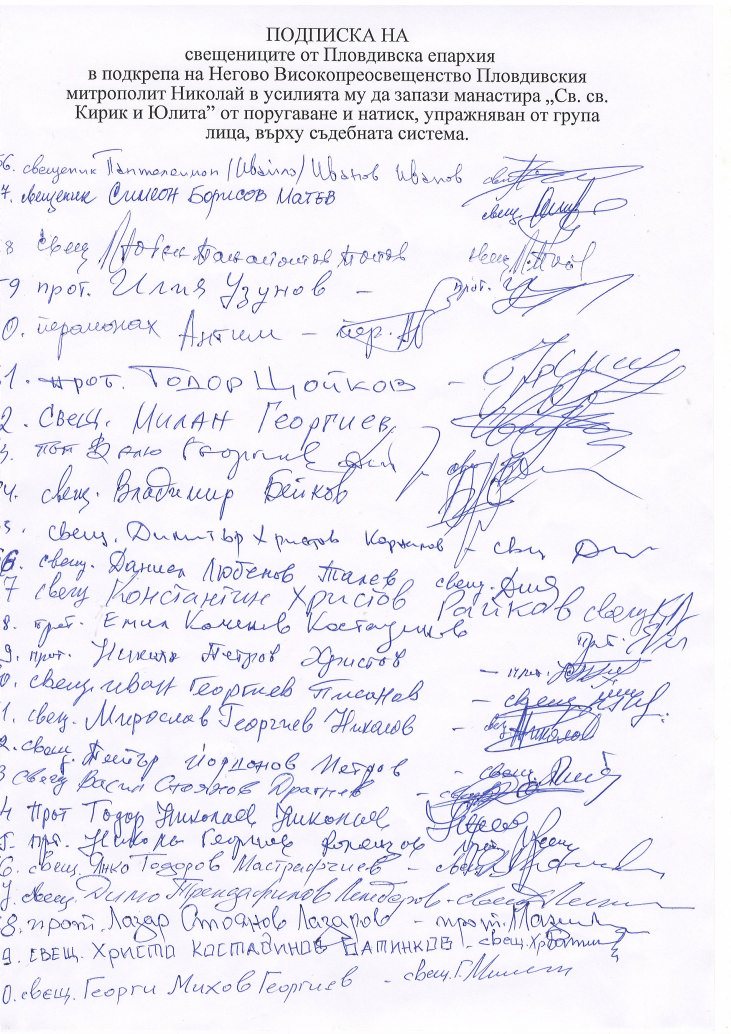 ПОДПИСКА НА
свещениците от Пловдивска епархия
в подкрепа на Негово Високопреосвещенство Пловдивския
митрополит Николай в усилията му да запази манастира „Св. св.
Кирик и Юлита” от поругаване и натиск, упражняван от група
лица, върху съдебната система.
6. свещеник Пантелеимон /Ивайло/ Иванов Иванов
7. свещеник Симеон Борисов Матев свещ.
8 свещ Попов свещ.
9 прот. Илия Узунов - прот.
0. йеромонах Антим - йер.
1. прот. Тодор Цойков -
2. свещ. Милан Георгиев
3. поп Георгиев
4. свещ. Владимир Бейков
свещ. Димитър Христов - свещ
6. свещ. Даниел Любенов Талев свещ.
7 свещ Константин Христов Райков свещ
8. прот. Емил Костадинов прот.
9. прот. Никола Петров Христов -
0. свещ. Иван Георгиев Писанов - свещ.
1. свещ. Мирослав Георгиев Николов - Николов
2. свещ. Петър Йорданов Петров - свещ.
3 свещ Васил Стоянов Драгнев -
4 Прот Тодор Николаев Николаев
прт. Никола Георгиев
6. свещ. Янко Тодоров -
свещ. Димо Трендафилов - свещ
8. прот. Лазар Стоянов Лазаров - прот.
9. свещ. Христо Костадинов Батинков - свещ.
0. свещ. Георги Михов Георгиев - свещ. Г.